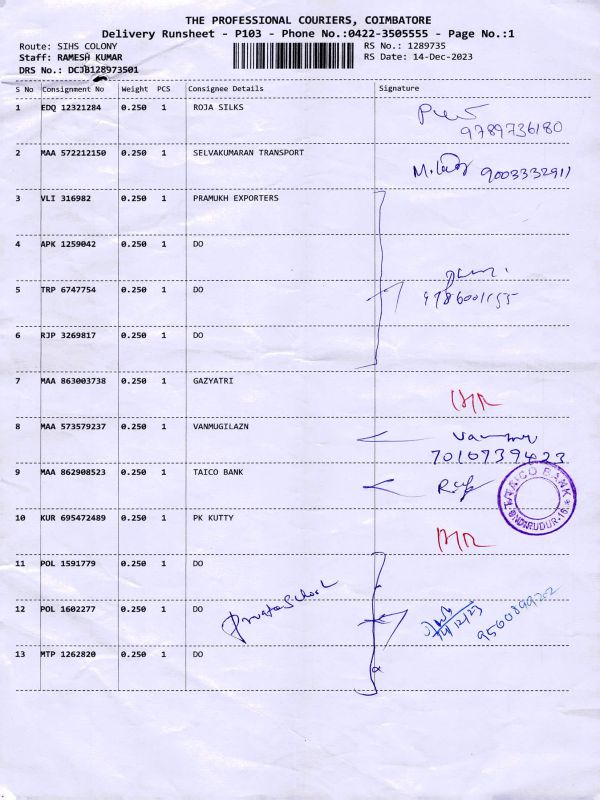 THE PROFESSIONAL COURIERS, COIMBATORE
Delivery Runsheet - P103 - Phone No.:0422-3505555 - Page No.:1
Route: SIHS COLONY
RS No.: 1289735
Staff: RAMESH KUMAR
RS Date: 14-Dec-2023
DRS No.: DCJB128973501
S No Consignment No Weight PCS Consignee Details Signature
1 EDQ 12321284 0.250 1 ROJA SILKS
9789736180
2 MAA 572212150 0.250 1 SELVAKUMARAN TRANSPORT
9003332911
3 VLI 316982 0.250 1 PRAMUKH EXPORTERS
4 APK 1259042 0.250 1 DO
5 TRP 6747754 0.250 1 DO
6 RJP 3269817 0.250 1 DO
7 MAA 863003738 0.250 1 GAZYATRI
8 MAA 573579237 0.250 1 VANMUGILAZN
7010739423
9 MAA 862908523 0.250 1 TAICO BANK
TAICO BANK
10 KUR 695472489 0.250 1 PK KUTTY
11 POL 1591779 0.250 1 DO
12 POL 1602277 0.250 1 DO
13 MTP 1262820 0.250 1 DO